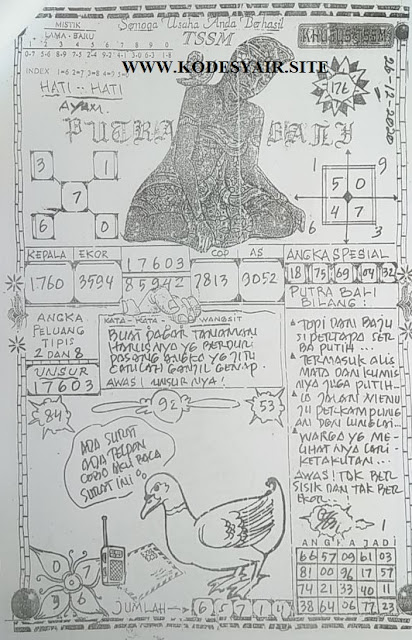 MISTIK
Semoga Usaha Anda Berhasil
LAMA - BARU
TSSM
KHUSUS TSSM
1 2 3 4 5 6 7 8 9 0
INDEX
WWW.KODESYAIR.SITE
HATI - HATI
AYAM
176
26-12-2020
PUTRA BALI
3 1
7
6 0
1 9
5 0
4 7
6 3
KEPALA EKOR
17603
COP AS
ANGKA SPESIAL
1760 3594
85942
7813 9052
18 75 69 04 32
PUTRA BALI
BILANG :
ANGKA
PELUANG
TIPIS
2 DAN 8
UNSUR
17603
KATA - KATA - WANGSIT
BUAT PAGAR TANAMAN
HARUSNYA YG BERDURI
PASANG ANGKA YG JITU
CARILAH GANJIL GENAP.
AWAS! UNSUR NYA!
TOPI DAN BAJU
SI PERTAPA SER
BA PUTIH...
TERMASUK ALIS
MATA DAN KUMIS
NYA JUGA PUTIH...
IA JALAN MENU
JU PERKAMPUNG
AN DGN LUNGLAI...
WARGA YG ME-
LIHAT NYA LARI
KETAKUTAN...
AWAS! TAK BER
SISIK DAN TAK BER
EKOR...
84
92
53
ADA SURAT
ADA TELPON
COBO AKU BACA
SURAT INI
0 7
3 6
JUMLAH
6 5 7 1 4
1
ANGKA JADI
66 57 09 61 03
81 00 96 17 57
74 21 33 40 11
38 64 06 77 23